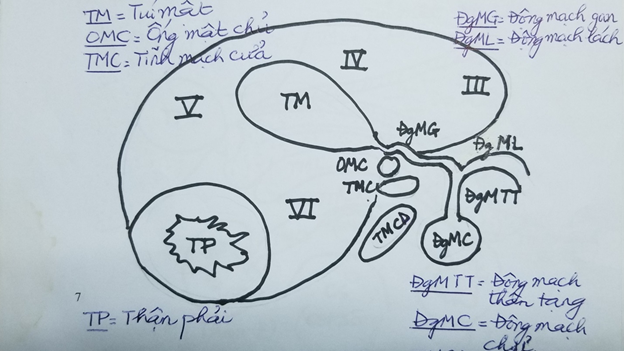 TM = Túi mật
OMC = Ống mật chủ
TMC = Tĩnh mạch cửa
ĐgMG = Động mạch gan
ĐgML = Động mạch lách
IV
III
V
TM
ĐgMG
ĐgML
OMC
TMC
ĐgMTT
VI
TMCD
ĐgMC
TP
7
TP = Thận phải
ĐgMTT = Động mạch
thân tạng
ĐgMC = Động mạch
chủ